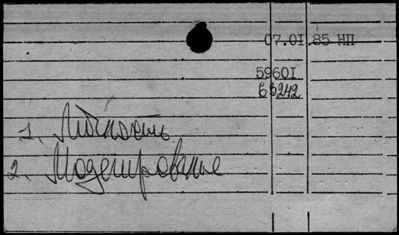 07.01.85 НП
59601
Б3242
1. Личность
2. Моделирование